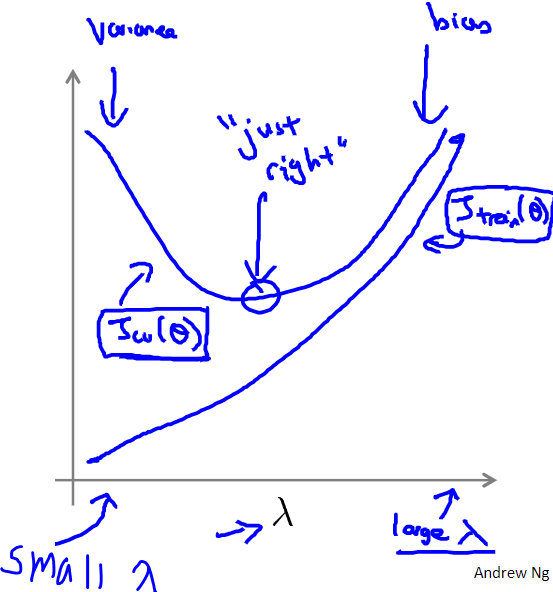 Variance
bias
"just
right"
J train (θ)
J cv (θ)
→ λ
large λ
small λ
Andrew Ng